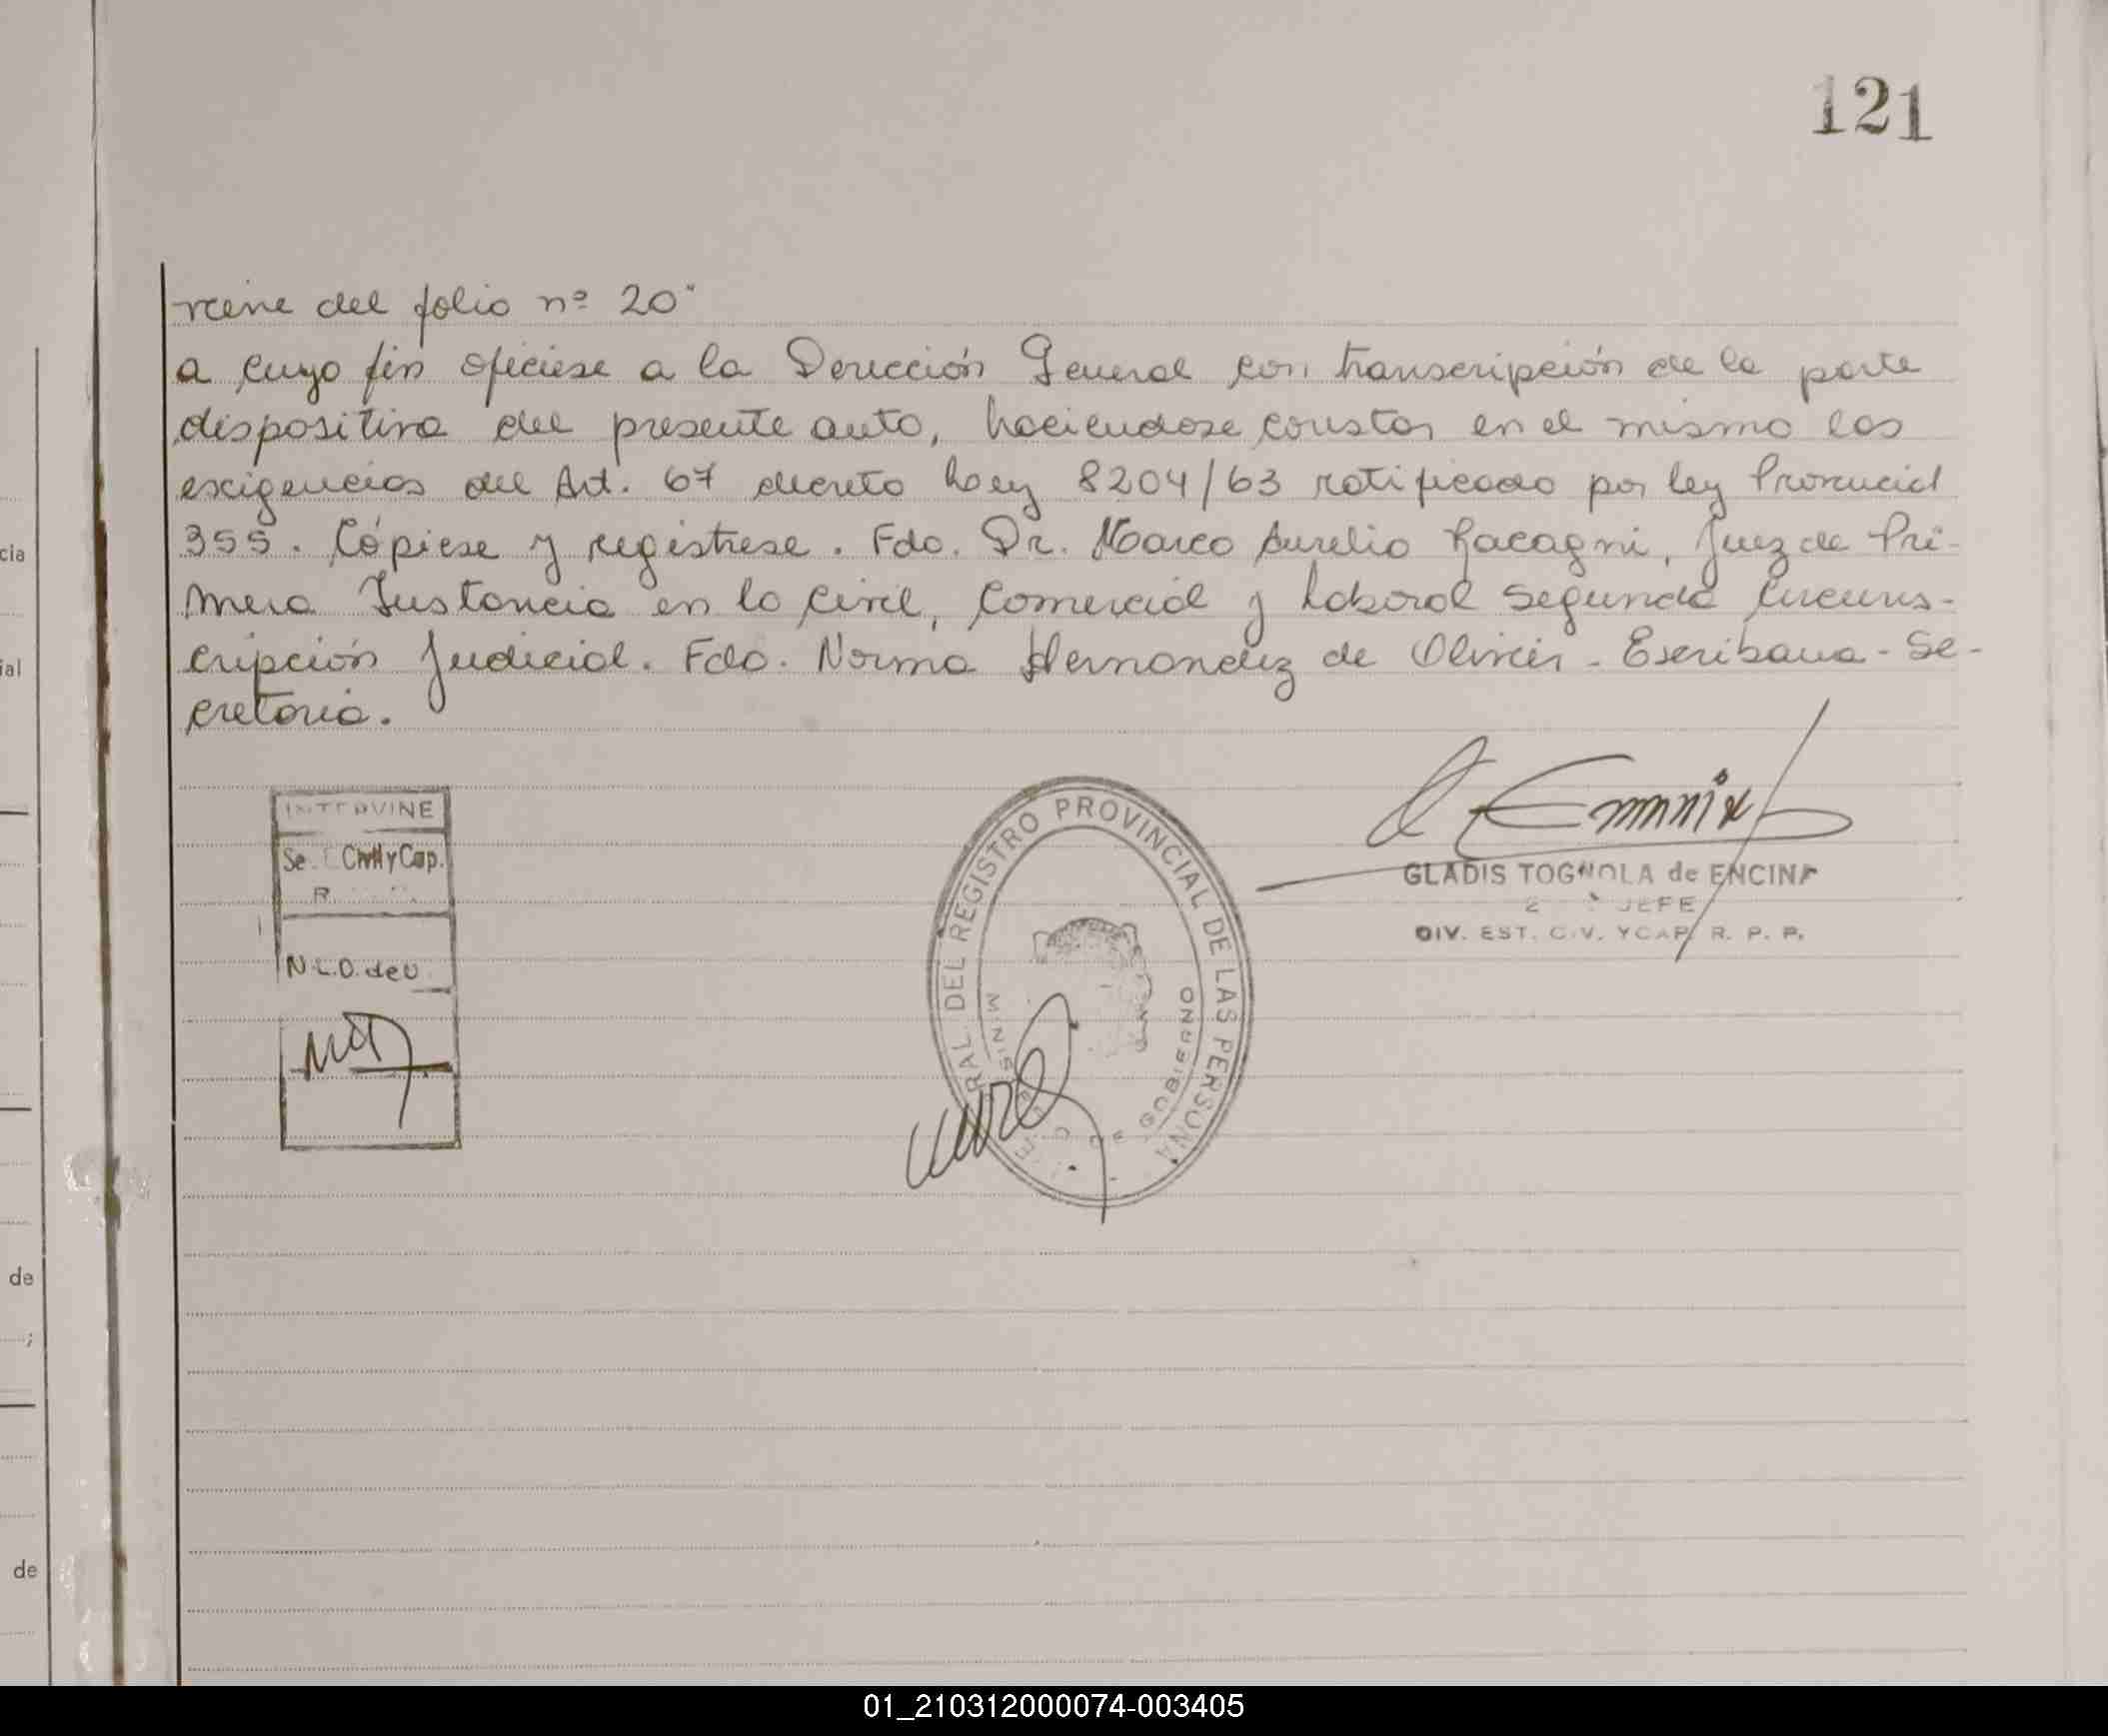 121
viene del folio nº 20"
a cuyo fin ofíciese a la Dirección General con transcripción de la parte
dispositiva del presente auto, haciendose constar en el mismo las
exigencias del Art. 67 decreto Ley 8204/63 ratificado por ley Provincial
355. Cópiese y regístrese. Fdo. Dr. Marco Aurelio Racagni, Juez de Pri-
mera Instancia en lo Civil, Comercial y Laboral Segunda Circuns-
cripción Judicial. Fdo. Norma Hernandez de Olivier - Escribana - Se-
cretaria.
INTERVINE
Se. Civil y Cap.
R
N.L.D. de U
RAL DEL REGISTRO PROVINCIAL DE LAS PERSONA
GOBIERNO
GLADIS TOGNOLA de ENCINA
JEFE
DIV. EST. CIV. Y CAP. R. P. P.
cia
ial
de
de
01_210312000074-003405